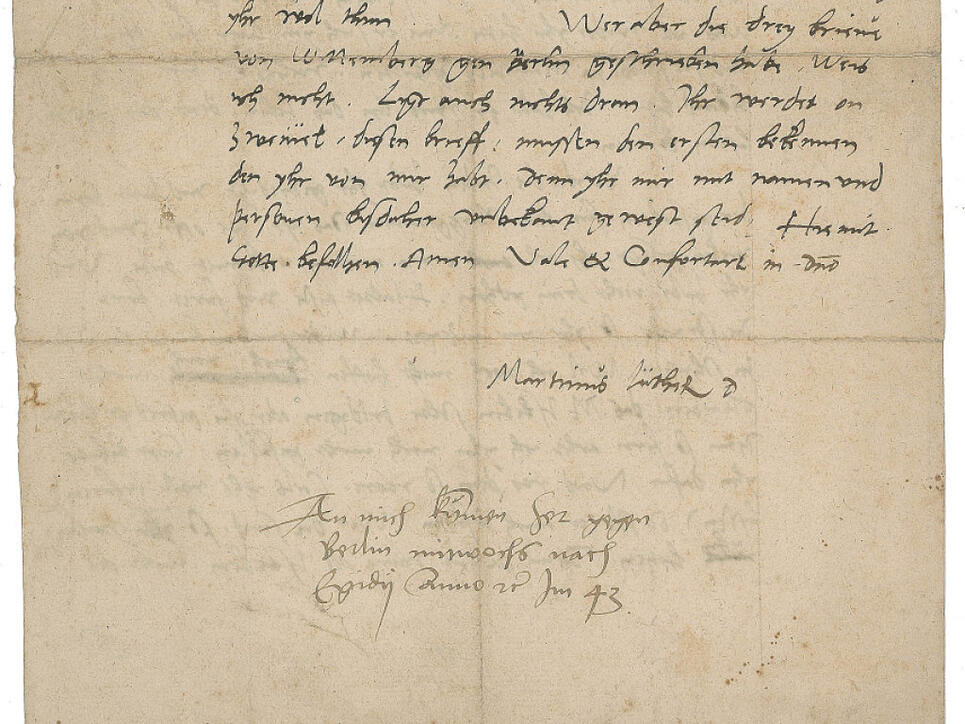 yhr wol thun Wer aber die drey brieve
von Wittemberg gen Berlin geschrieben habe, Weis
ich nicht. Ligt auch nichts dran. Ihr werdet on
zweivel, diesen brieff, mussen den ersten bekennen
den yhr von mir habt, denn yhr mir mit namen und
personen bisdaher unbekant gewest seid. Hiemit
Gotte befolhen. Amen Vale & Confortare in dno
Martinus Luther d
An mich kumen her gegen
Berlin mitwochs nach
Egidij Anno rc Im 43